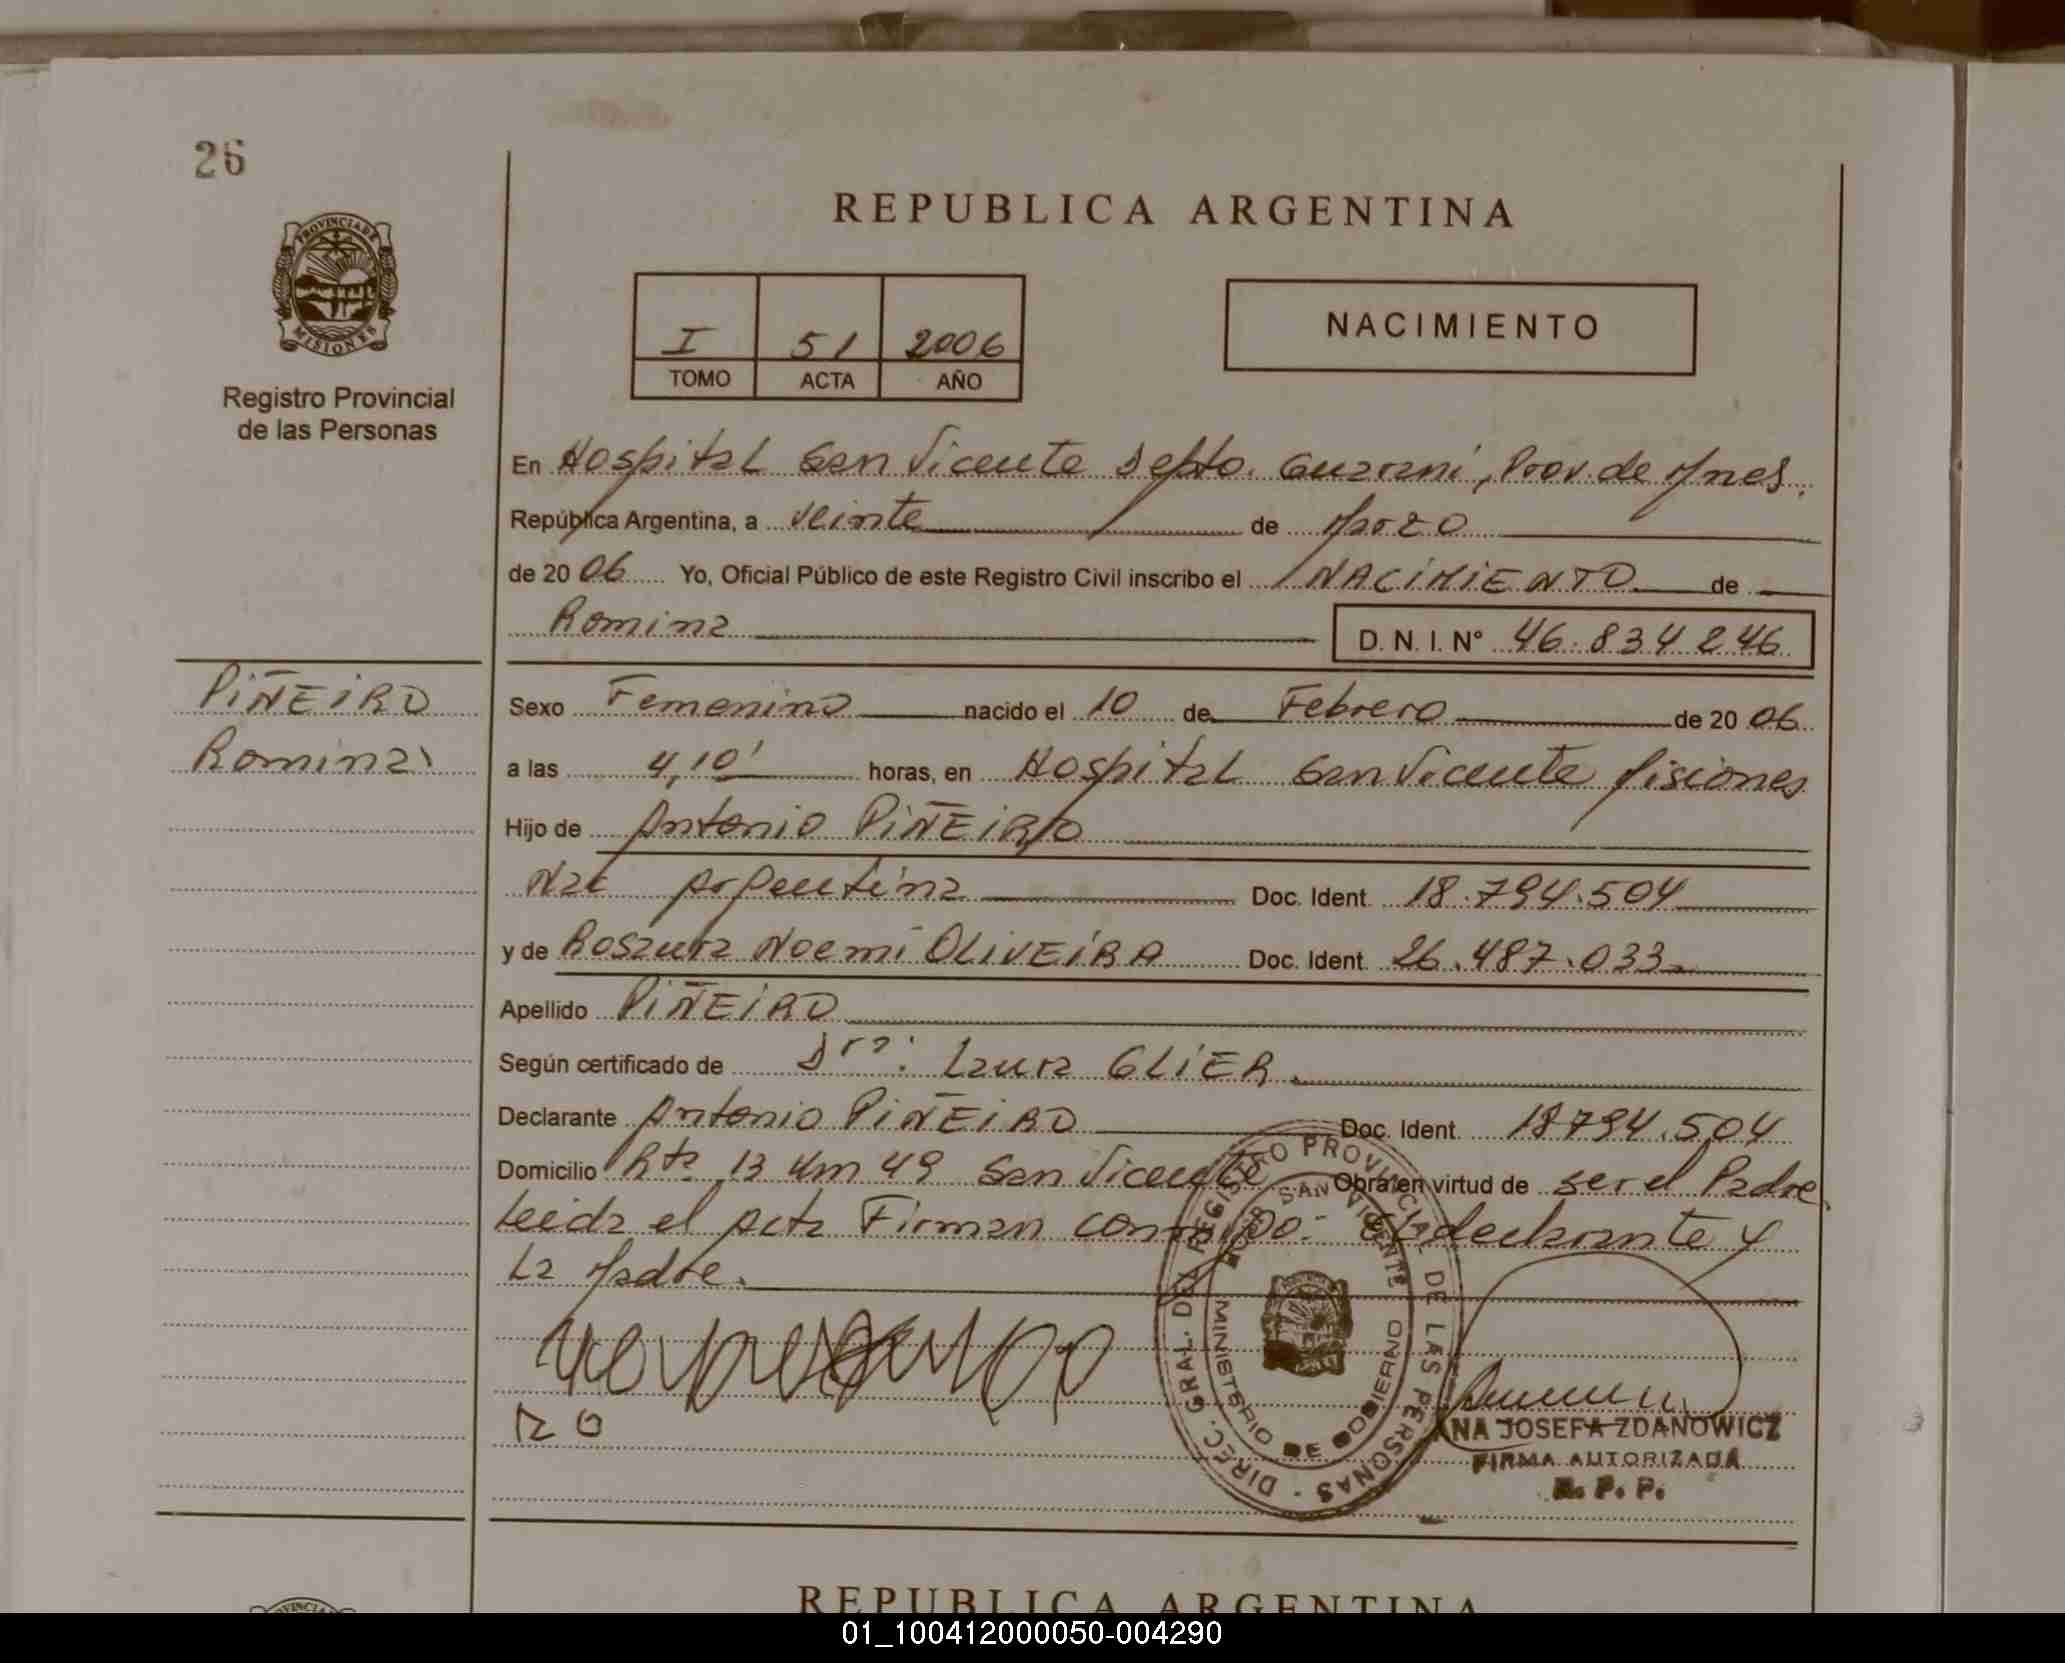 26
PROVINCIA DE
MISIONES
Registro Provincial
de las Personas
REPUBLICA ARGENTINA
I 51 2006
TOMO ACTA AÑO
NACIMIENTO
En Hospital San Vicente Depto. Guaraní, Prov. de Mnes.
República Argentina, a veinte de Marzo
de 2006 Yo, Oficial Público de este Registro Civil inscribo el NACIMIENTO de
Romina D. N. I. N° 46.834 246
PIÑEIRO
Romina
Sexo Femenino nacido el 10 de Febrero de 2006
a las 4,10' horas, en Hospital San Vicente Misiones
Hijo de Antonio PIÑEIRO
Nac Argentina Doc. Ident. 18.794.504
y de Rosaura Noemí OLIVEIRA Doc. Ident. 26.487.033
Apellido PIÑEIRO
Según certificado de Dra. Laura GLIER.
Declarante Antonio PIÑEIRO Doc. Ident. 18794.504
Domicilio Rta 13 Km 49 San Vicente Obra en virtud de ser el Padre
Leida el Acta Firman conmigo: El declarante y
La Madre.
DIREC. GRAL. DEL REGISTRO PROVINCIAL DE LAS PERSONAS
SAN VICENTE
MINISTERIO DE GOBIERNO
NA JOSEFA ZDANOWICZ
FIRMA AUTORIZADA
R. P. P.
REPUBLICA ARGENTINA
01_100412000050-004290